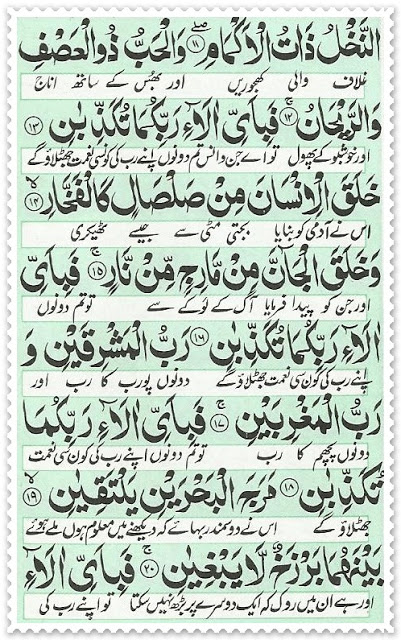 النَّخْلُ ذَاتُ الْاَكْمَامِ ۝۱۱ وَالْحَبُّ ذُو الْعَصْفِ
غلاف والی کھجوریں اور بھُس کے ساتھ اناج
وَالرَّيْحَانُ ۝۱۲ فَبِاَيِّ اٰلَآءِ رَبِّكُمَا تُكَذِّبٰنِ ۝۱۳
اور خوشبو کے پھول تو اے جن و انس تم دونوں اپنے رب کی کونسی نعمت جھٹلاؤ گے
خَلَقَ الْاِنْسَانَ مِنْ صَلْصَالٍ كَالْفَخَّارِ ۝۱۴
اس نے آدمی کو بنایا بجتی مٹی سے جیسے ٹھیکری
وَخَلَقَ الْجَآنَّ مِنْ مَّارِجٍ مِّنْ نَّارٍ ۝۱۵ فَبِاَيِّ
اور جن کو پیدا فرمایا آگ کے لوکے سے تو تم دونوں
اٰلَآءِ رَبِّكُمَا تُكَذِّبٰنِ ۝۱۶ رَبُّ الْمَشْرِقَيْنِ وَ
اپنے رب کی کون سی نعمت جھٹلاؤ گے دونوں پورب کا رب اور
رَبُّ الْمَغْرِبَيْنِ ۝۱۷ فَبِاَيِّ اٰلَآءِ رَبِّكُمَا
دونوں پچھم کا رب تو تم دونوں اپنے رب کی کون سی نعمت
تُكَذِّبٰنِ ۝۱۸ مَرَجَ الْبَحْرَيْنِ يَلْتَقِيٰنِ ۝۱۹
جھٹلاؤ گے اس نے دو سمندر بہائے کہ دیکھنے میں معلوم ہوں ملے ہوئے
بَيْنَهُمَا بَرْزَخٌ لَّا يَبْغِيٰنِ ۝۲۰ فَبِاَيِّ اٰلَآءِ
اور ہے ان میں روک کہ ایک دوسرے پر بڑھ نہیں سکتا تو اپنے رب کی